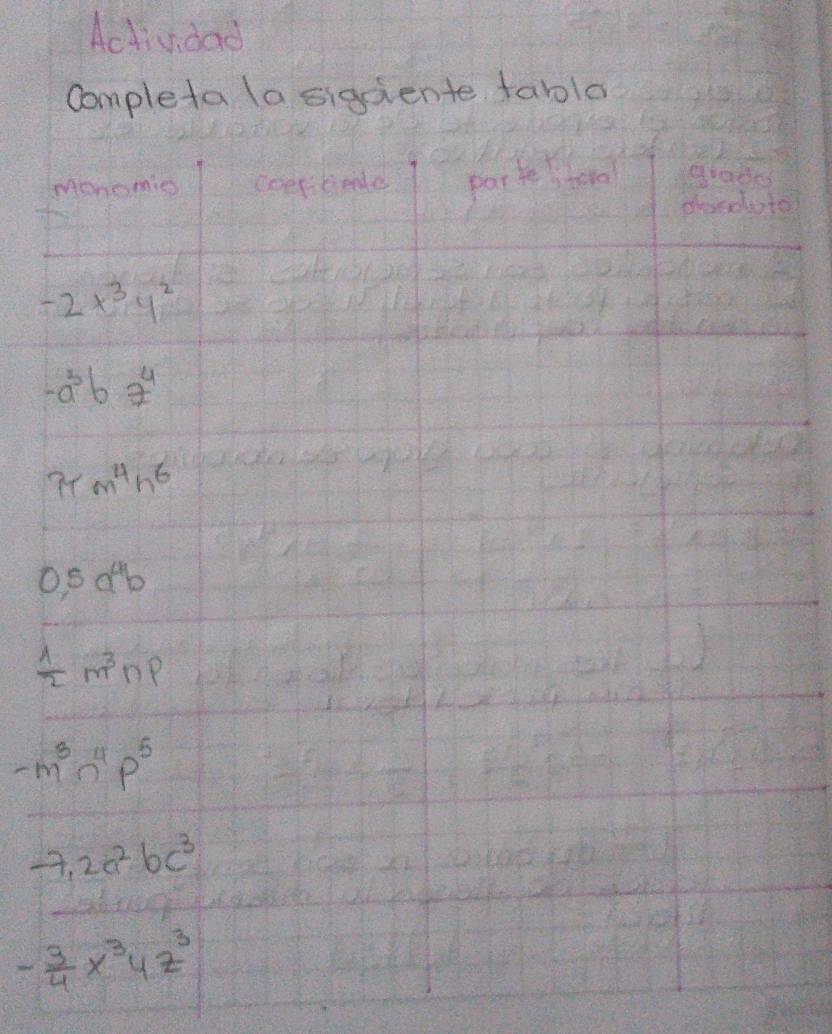 Actividad
Completa la siguiente tabla
monomio coeficiente parte literal grado absoluto
-2x³y²
-a³bz⁴
π m⁴n⁶
0,5 a⁴b
1/2 m³np
-m³n⁴p⁵
-7,2a²bc³
-3/4 x³yz³